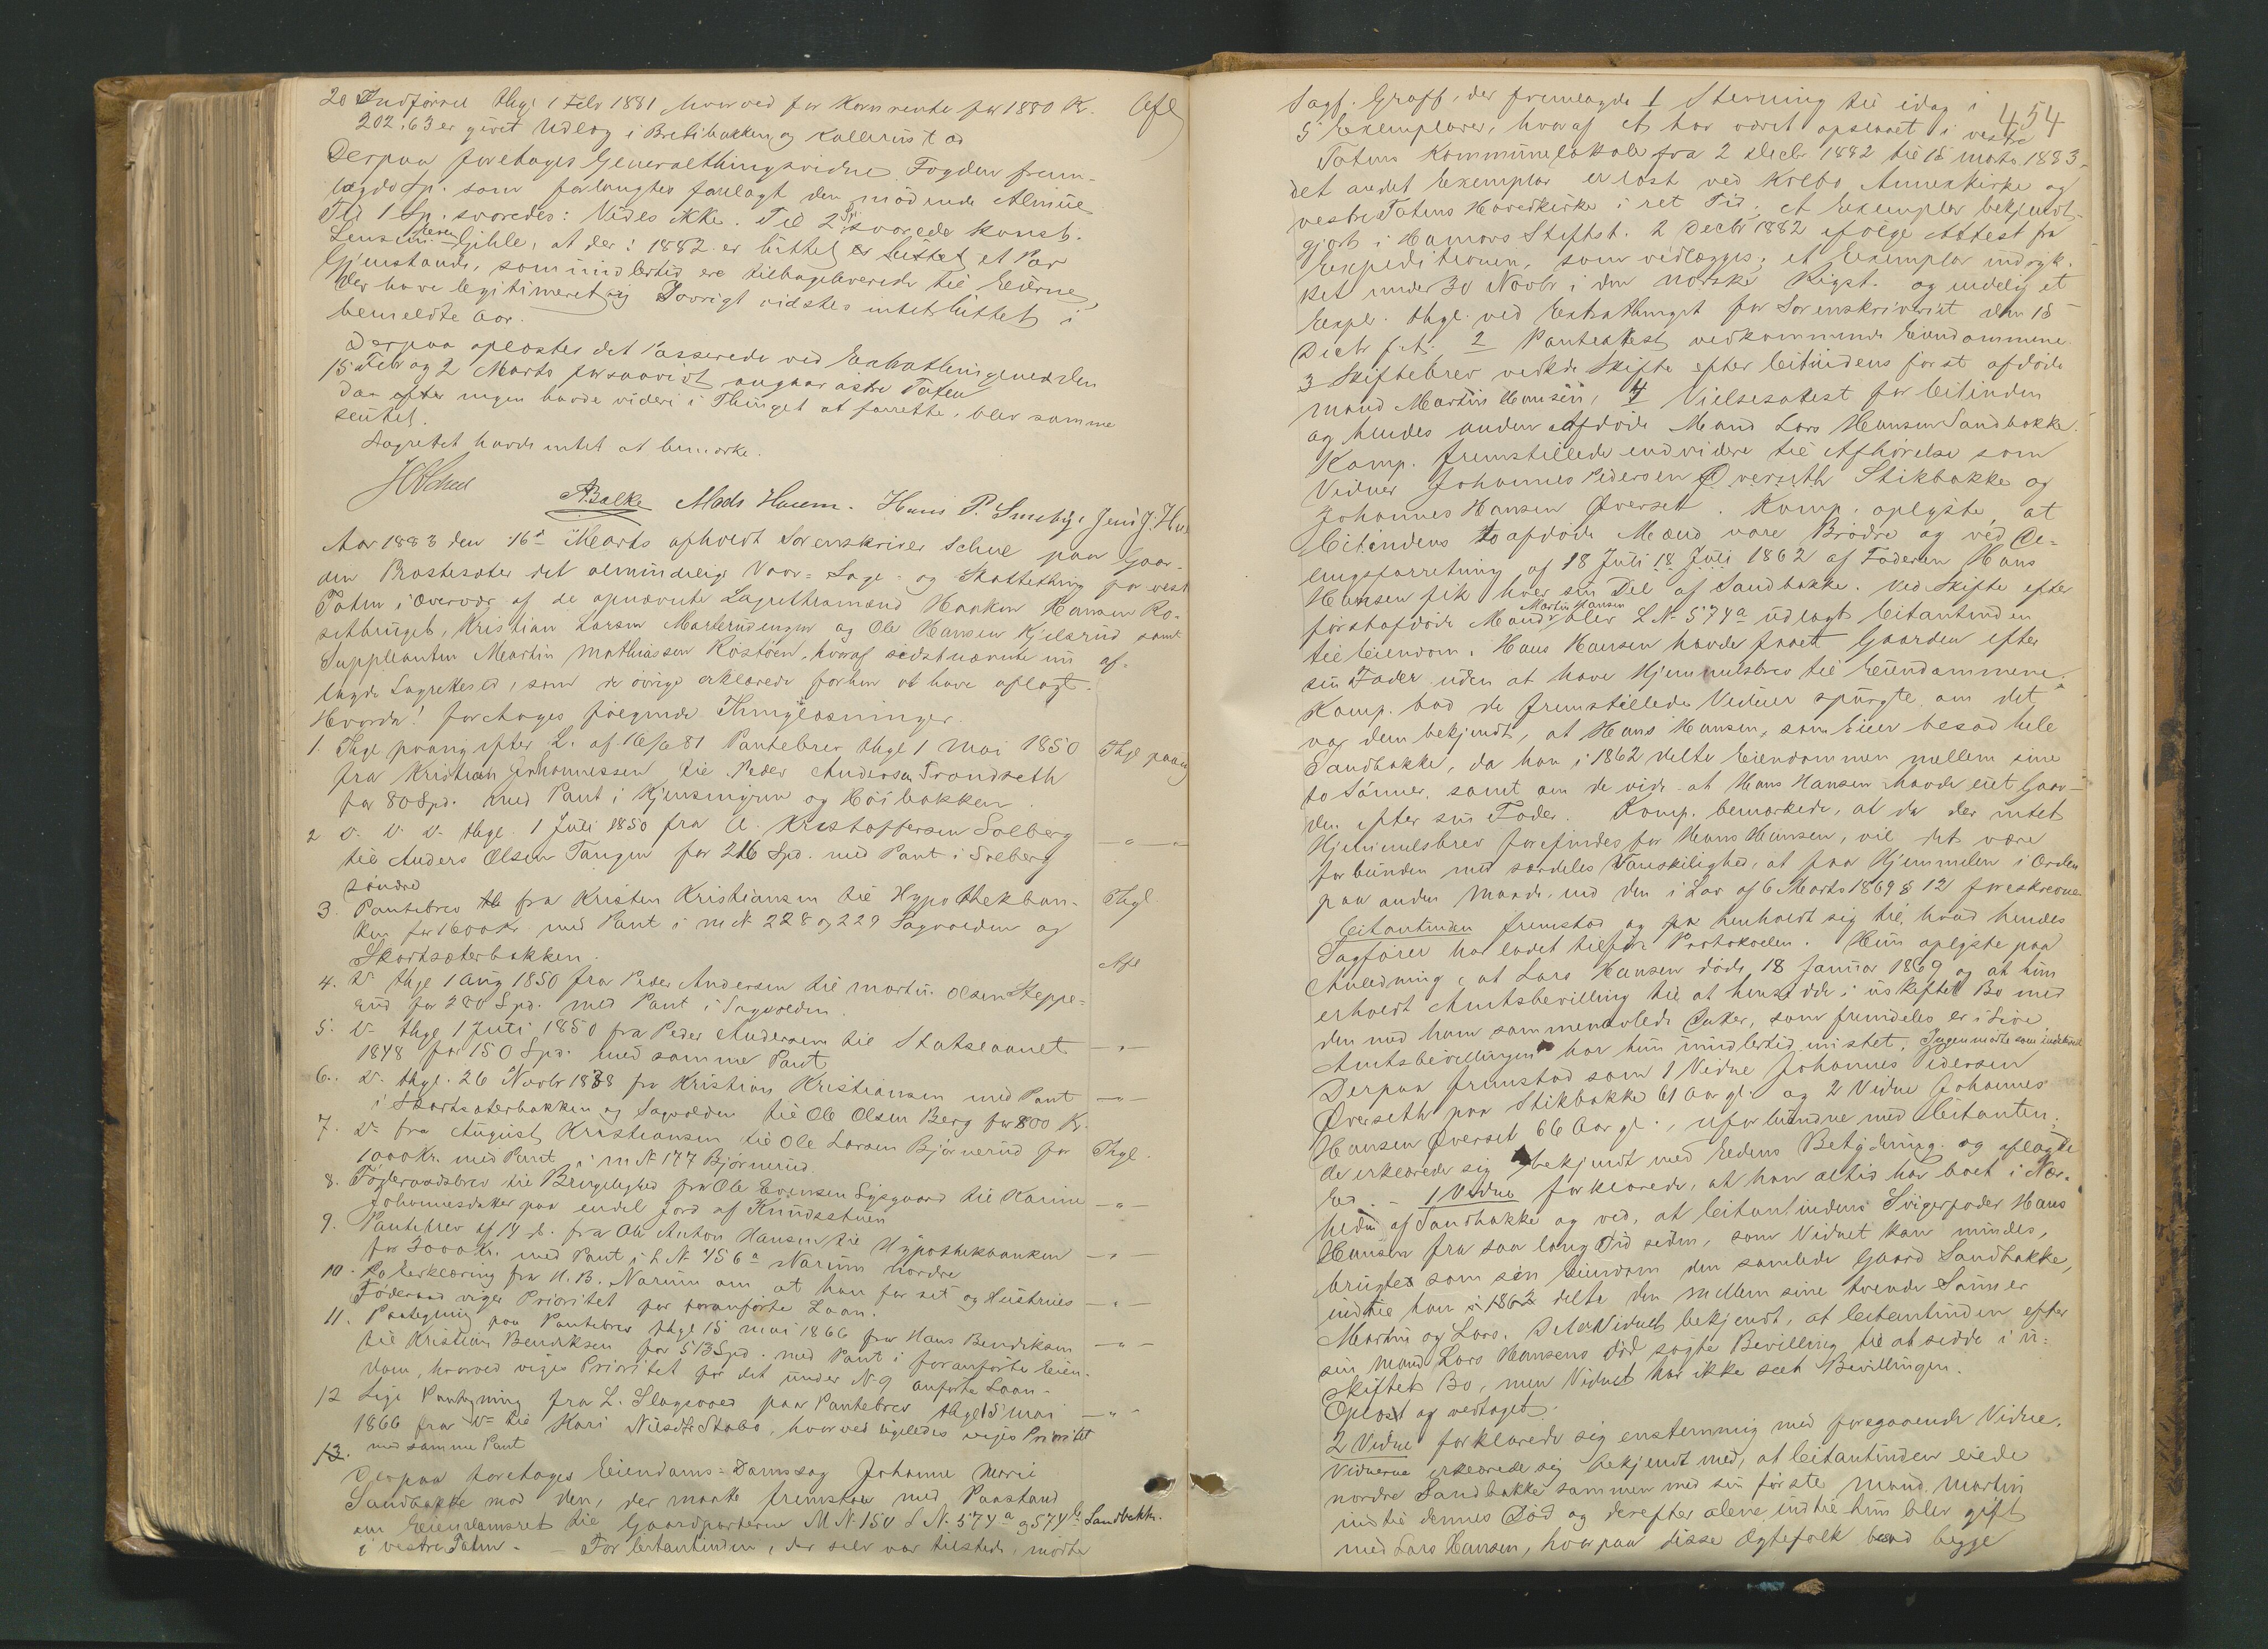 20 Indførsel thgl 1 Febr 1881 hvorved for Kornrente for 1880 Kr. Afl
202,63 er givet Udlæg i Bretibakken og Kallerust
Derpaa foretoges Generalthingsvidne. Fogden frem-
lagde Sp. som forlangtes forelagt den mødende Almue
Til 1 Sp. svaredes: Vides ikke. Til 2 Sp. svarede konst.
Lensm. Gihle, at der i 1882 er hittet et Par
Gjenstande, som imidlertid ere tilbageleverede til Eierne,
der have legitimeret sig Iøvrigt vidstes intet hittet i
bemeldte Aar.
Derpaa oplæstes det Passerede ved Extrathingene den
15 Febr og 2 Marts forsaavidt angaar østre Toten
Da efter ingen havde videre i Thinget at forrette, blev samme
sluttet.
Lagretet havde intet at bemærke.
HSchee
ABalke Mads Haum. Hans P. Smeby. Jens J.
Aar 1883 den 16de Marts afholdt Sorenskriver Schee paa Gaar-
den Prostesæter det almindelige Vaar- Sage- og Skattething for vest
Toten i Overvær af de opnævnte Lagrettesmænd Haaken Hansen Ro-
setbruget, Kristian Larsen Marterudengen og Ole Hansen Kjelsrud samt
Suppleanten Martin Mathiassen Røstøen, hvoraf sidstnævnte nu af-
lagde Lagrettesed, som de øvrige erklærede forhen at have aflagt.
Hvorda! foretoges følgende Thinglæsninger.
1. Thgl paany efter L. af 16/6 81 Pantebrev thgl 1 Mai 1850 Thgl paany
fra Kristian Johannessen til Peder Andersen Trondseth
for 80 Spd. med Pant i Kjensengen og Høibakken.
2 D. D. D. thgl. 1 Juli 1850 fra A. Kristoffersen Solberg
til Anders Olsen Tangen for 216 Spd. med Pant i Solberg — " —
søndre
3. Pantebrev fra Kristen Kristiansen til Hypothekban- Thgl
ken for 1600 Kr med Pant i m N 228 og 229 Sagvolden og
Skartsæterbakken.
4. D. thgl 1 Aug 1850 fra Peder Andersen til Martin Olsen Steppe- Afl
rud for 280 Spd. med Pant i Sagvolden.
5. D. thgl 1 Juli 1850 fra Peder Andersen til Statslaanet
1848 for 150 Spd. med samme Pant — " —
6. D. thgl. 26 Novbr 1878 fra Kristian Kristiansen med Pant
i Skartsæterbakken og Sagvolden til Ole Olsen Berg for 800 Kr. — " —
7. D. fra August Kristiansen til Ole Larsen Bjørnerud for
1000 Kr. med Pant i m N 177 Bjørnerud. Thgl.
8. Føderaadsbrev til Brugelighed fra Ole Evensen Lysgaard til Karine
Johannesdatter paa endel Jord af Knudsstuen — " —
9. Pantebrev af 14 d. fra Ole Anton Hansen til Hypothekbanken
for 3000 Kr. med Pant i L N 156a Narum nordre — " —
10. Paaterklæring fra H. B. Narum om at han for sit og Hustrues
Føderaad viger Prioritet for foranførte Laan. — " —
11. Paategning paa Pantebrev thgl 15 Mai 1866 fra Hans Bendiksen
til Kristian Bendiksen for 513 Spd. med Pant i foranførte Eien- — " —
dom, hvorved viges Prioritet for det under N 9 anførte Laan.
12 Lige Paategning fra L. Slagsvold paa Pantebrev thgl 15 Mai
1866 fra D. til Kari Nilsdtr Stabo, hvorved ligeledes viges Prioritet — " —
13. med samme Pant
Derpaa foretoges Eiendoms-Domssag Johanne Marie
Sandbakke mod den, der maatte fremstaa med Paastand
om Eiendomsret til Gaardparterne M N. 150 L N. 574a og 574b Sandbakke.
i vestre Toten. — For Citantinden, der selv var tilstede, mødte
454
Sagf. Graff, der fremlagde 1 Stevning til idag i
5 Exemplarer, hvoraf et har været opslaaet i vestre
Totens Kommunelokale fra 2 Decbr 1882 til 15 Marts 1883.
det andet Exemplar er læst ved Kolbo Annexkirke og
vestre Totens Hovedkirke i ret Tid, et Exemplar bekjendt-
gjort i Hamars Stiftst. 2 Decbr 1882 ifølge Attest fra
Expeditionen, som vedlægges, et Exemplar indryk-
ket under 30 Novbr i den norske Rigst. og endelig et
Expl. thgl. ved Extrathinget for Sorenskriveriet den 15
Decbr f. A. 2 Panteattest vedkommende Eiendommene.
3 Skiftebrev vedkde Skifte efter Citindens først afdøde
Mand Martin Hansen, 4 Vielsesatest for Citinden
og hendes anden afdøde Mand Lars Hansen Sandbakke.
Komp. fremstillede endvidere til Afhørelse som
Vidner Johannes Pedersen Øverseth Stikbakke og
Johannes Hansen Øverset. Komp. oplyste, at
Citindens to afdøde Mænd vare Brødre og ved De-
lingsforretning af 18 Juli 18 Juli 1862 af Faderen Hans
Hansen fik hver sin Del af Sandbakke. Ved Skifte efter
førstafdøde Mand Martin Hansen blev L N 574a udlagt Citantinden
til Eiendom. Hans Hansen havde faaet Gaarden efter
sin Fader uden at have Hjemmelsbrev til Eiendommene.
Komp. bad de fremstillede Vidner spurgte om det
var dem bekjendt, at Hans Hansen, som Eier besad hele
Sandbakke, da han i 1862 delte Eiendommen mellem sine
to Sønner, samt om de vide at Hans Hansen havde eiet Gaar-
den efter sin Fader. Komp. bemærkede, at da der intet
Hjemmelsbrev forefindes for Hans Hansen, vil det være
forbunden med særdeles Vanskelighed, at faa Hjemmelen i Orden
paa anden Maade, end den i Lov af 6 Marts 1869 § 12 foreskrevne
Citantinden fremstod og henholdt sig til, hvad hendes
Sagfører har ladet tilføre Protokollen. Hun oplyste paa
Anledning, at Lars Hansen døde 18 Januar 1869 og at hun
erholdt Amtsbevilling til at hensidde i uskiftet Bo med
den med ham sammenavlede Datter, som fremdeles er i Live
Amtsbevillingen har hun imidlertid mistet. Ingen mødte som indstevnt
Derpaa fremstod som 1 Vidne Johannes Pedersen
Øverseth paa Stikbakke 61 Aar gl. og 2 Vidne Johannes
Hansen Øverset 66 Aar gl., uforbundne med Citanten;
de erklærede sig bekjendt med Edens Betydning og aflagde
Ed. — 1 Vidne forklarede, at han altid har boet i Nær-
heden af Sandbakke og ved, at Citantindens Svigerfader Hans
Hansen fra saa lang Tid siden, som Vidnet kan mindes,
brugte som sin Eiendom den samlede Gaard Sandbakke,
indtil han i 1862 delte den mellem sine tvende Sønner
Martin og Lars. Det er Vidnet bekjendt, at Citantinden efter
sin Mand Lars Hansens Død søgte Bevilling til at sidde i u-
skiftet Bo, men Vidnet har ikke seet Bevillingen.
Oplæst og vedtaget.
2 Vidne forklarede sig enstemmig med foregaaende Vidne.
Vidnerne erklærede sig bekjendt med, at Citantinden eiede
nordre Sandbakke sammen med sin første Mand Martin
indtil dennes Død og derefter alene indtil hun blev gift
med Lars Hansen, hvorpaa disse Ægtefolk besad begge